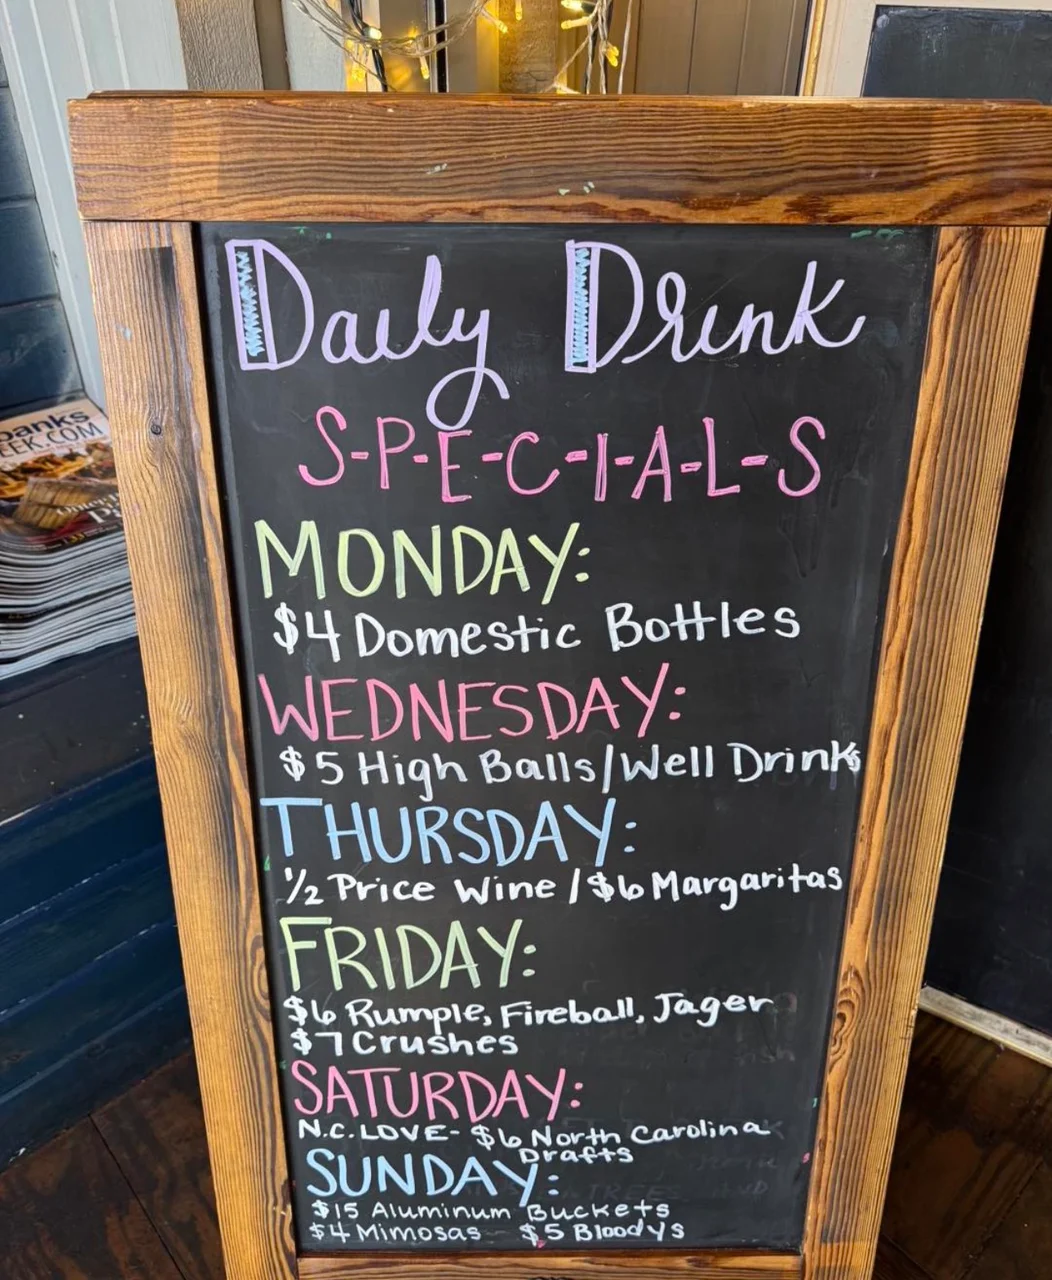 Daily Drink
S-P-E-C-I-A-L-S
MONDAY:
$4 Domestic Bottles
WEDNESDAY:
$5 High Balls/Well Drinks
THURSDAY:
1/2 Price Wine / $6 Margaritas
FRIDAY:
$6 Rumple, Fireball, Jager
$7 Crushes
SATURDAY:
N.C. LOVE- $6 North Carolina
Drafts
SUNDAY:
$15 Aluminum Buckets
$4 Mimosas $5 Bloodys
banks
EEK.COM